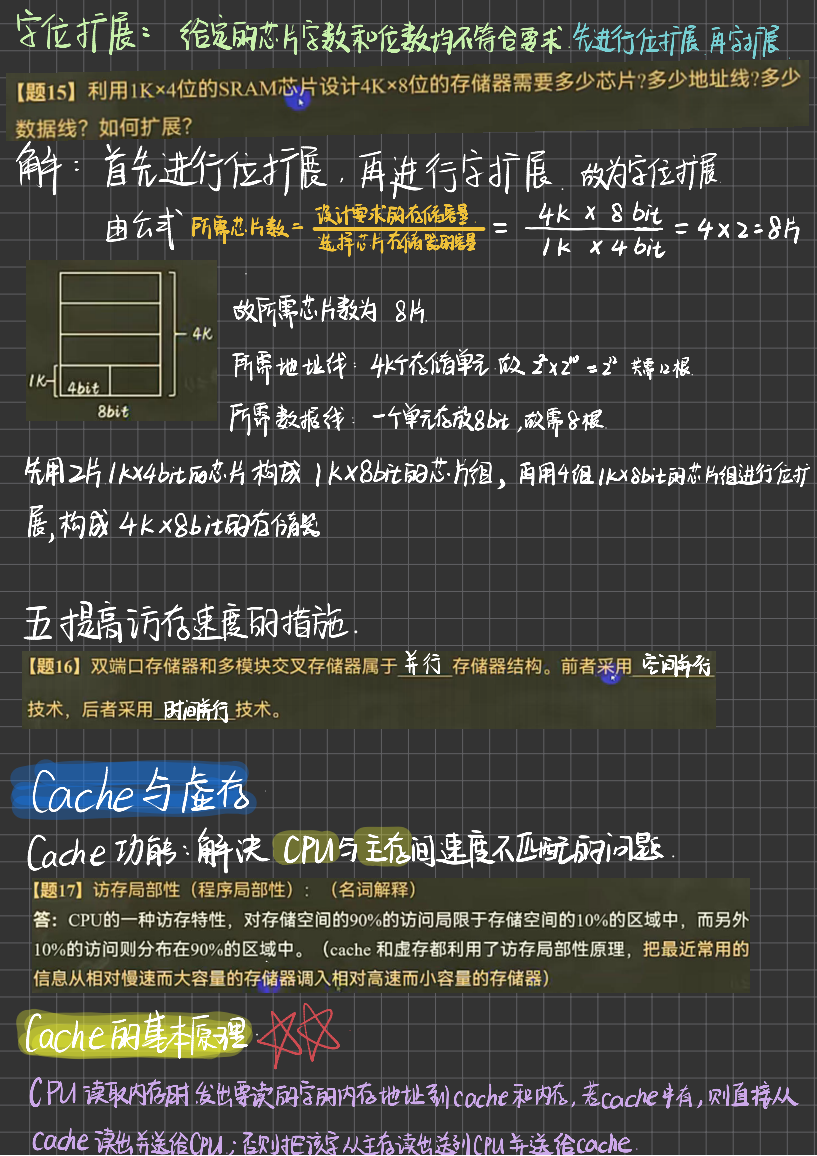 字位扩展： 给定的芯片字数和位数均不符合要求 先进行位扩展 再字扩展
【题15】利用1K×4位的SRAM芯片设计4K×8位的存储器需要多少芯片?多少地址线?多少
数据线？如何扩展？
解： 首先进行位扩展，再进行字扩展 故为字位扩展
由公式 所需芯片数= 设计要求的存储容量 / 选择芯片存储器的容量 = 4K × 8 bit / 1K × 4 bit = 4×2=8片
故所需芯片数为 8片
所需地址线： 4K个存储单元 故 2²×2¹⁰=2¹² 共需12根
所需数据线： 一个单元存放8bit，故需8根
4K
1K
4bit
8bit
先用2片1K×4bit的芯片构成 1K×8bit的芯片组，再用4组1K×8bit的芯片组进行位扩
展，构成 4K×8bit的存储器
五提高访存速度的措施.
【题16】双端口存储器和多模块交叉存储器属于 并行 存储器结构。前者采用 空间并行
技术，后者采用 时间并行 技术。
Cache与虚存
Cache 功能：解决 CPU与主存间速度不匹配的问题.
【题17】访存局部性（程序局部性）：（名词解释）
答：CPU的一种访存特性，对存储空间的90%的访问局限于存储空间的10%的区域中，而另外
10%的访问则分布在90%的区域中。（cache 和虚存都利用了访存局部性原理，把最近常用的
信息从相对慢速而大容量的存储器调入相对高速而小容量的存储器）
Cache的基本原理
CPU 读取内存时 发出要读的字的内存地址到cache和内存，若cache中有，则直接从
cache 读出并送给CPU；否则把该字从主存读出送到CPU并送给cache.